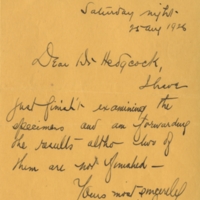 Saturday night -
25 Aug 1926
Dear Dr Hedgcock,
I have
just finish't examining the
specimens and am forwarding
the results altho two of
them are not finished -
Yours most sincerely